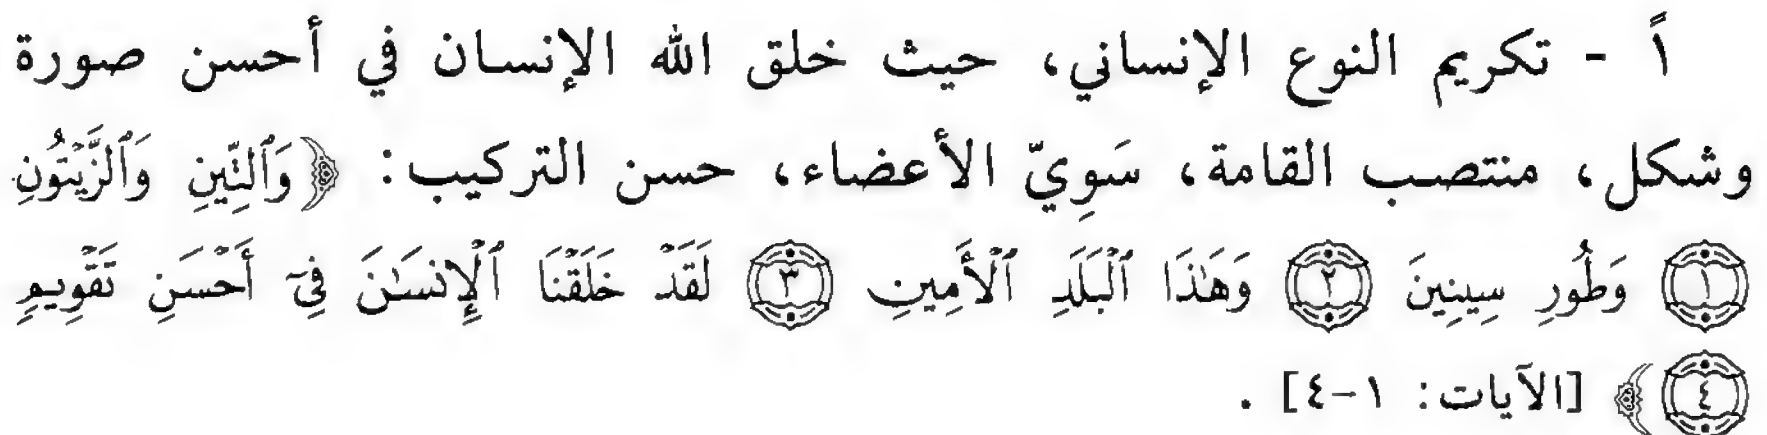 اً - تكريم النوع الإنساني، حيث خلق الله الإنسان في أحسن صورة
وشكل، منتصب القامة، سَوِيّ الأعضاء، حسن التركيب: ﴿وَٱلتِّينِ وَٱلزَّيۡتُونِ
١ وَطُورِ سِينِينَ ٢ وَهَٰذَا ٱلۡبَلَدِ ٱلۡأَمِينِ ٣ لَقَدۡ خَلَقۡنَا ٱلۡإِنسَٰنَ فِيٓ أَحۡسَنِ تَقۡوِيمٖ
٤﴾ [الآيات: ١-٤] .